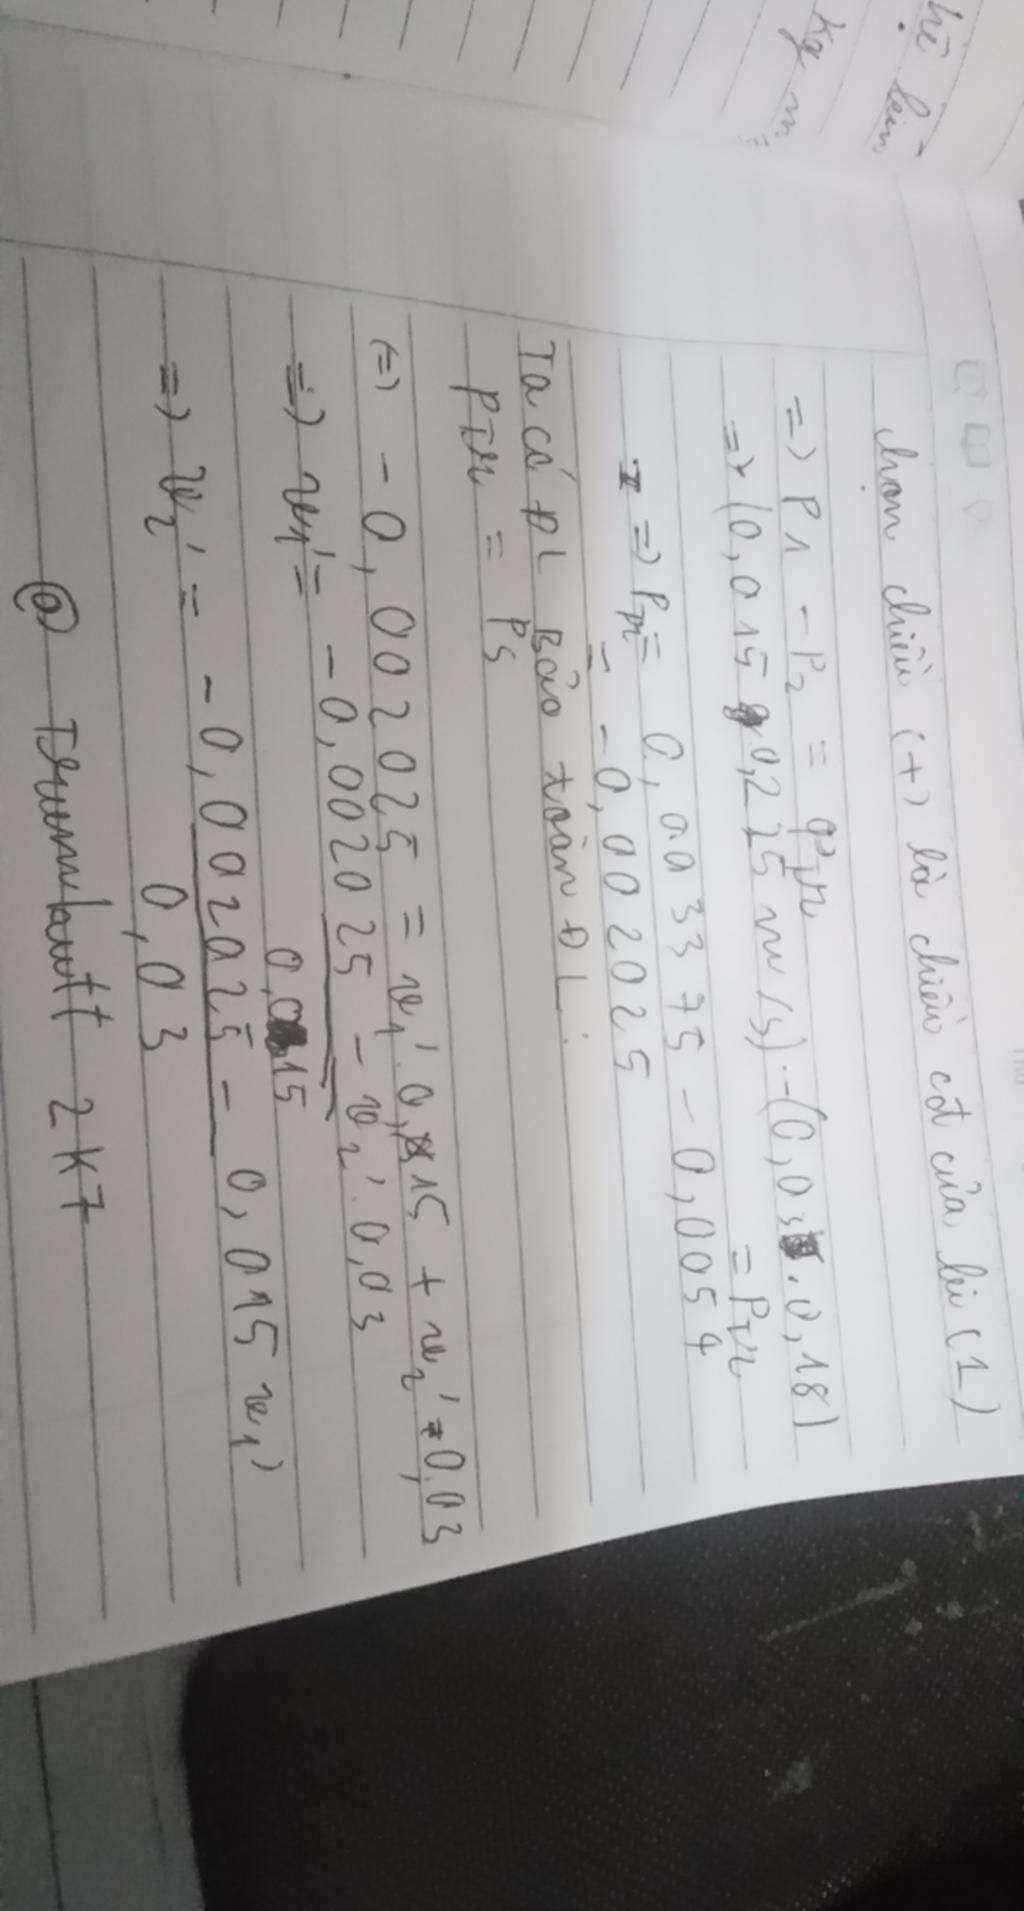 chọn chiều (+) là chiều cđ của bi (1)
=> P1 - P2 = Ptr
=> (0,015 . 0,225 m/s) - (0,03 . 0,18)
= Ptr
=> Ptr = 0,003375 - 0,0054
= -0,002025
Ta có ĐL Bảo toàn ĐL:
Ptr = Ps
(=) -0,002025 = v1'. 0,015 + v2'. 0,03
=> v1' = -0,002025 - v2'. 0,03
0,015
=> v2' = -0,002025 - 0,015 v1'
0,03
2K7